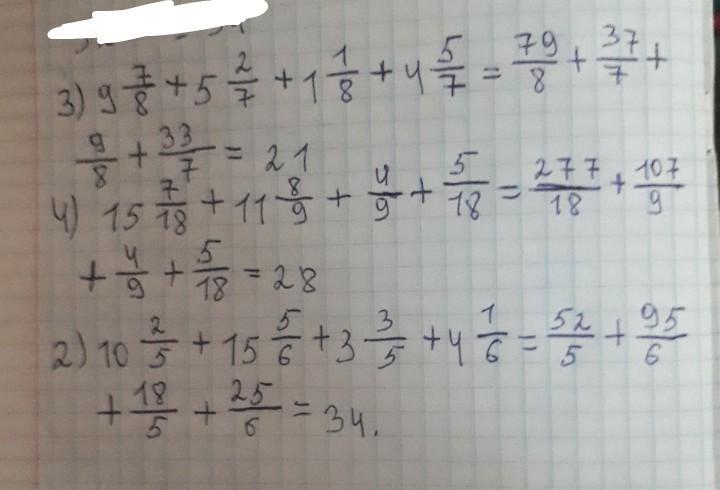 3) 9 7/8 + 5 2/7 + 1 1/8 + 4 5/7 = 79/8 + 37/7 +
9/8 + 33/7 = 21
4) 15 7/18 + 11 8/9 + 4/9 + 5/18 = 277/18 + 107/9
+ 4/9 + 5/18 = 28
2) 10 2/5 + 15 5/6 + 3 3/5 + 4 1/6 = 52/5 + 95/6
+ 18/5 + 25/6 = 34.